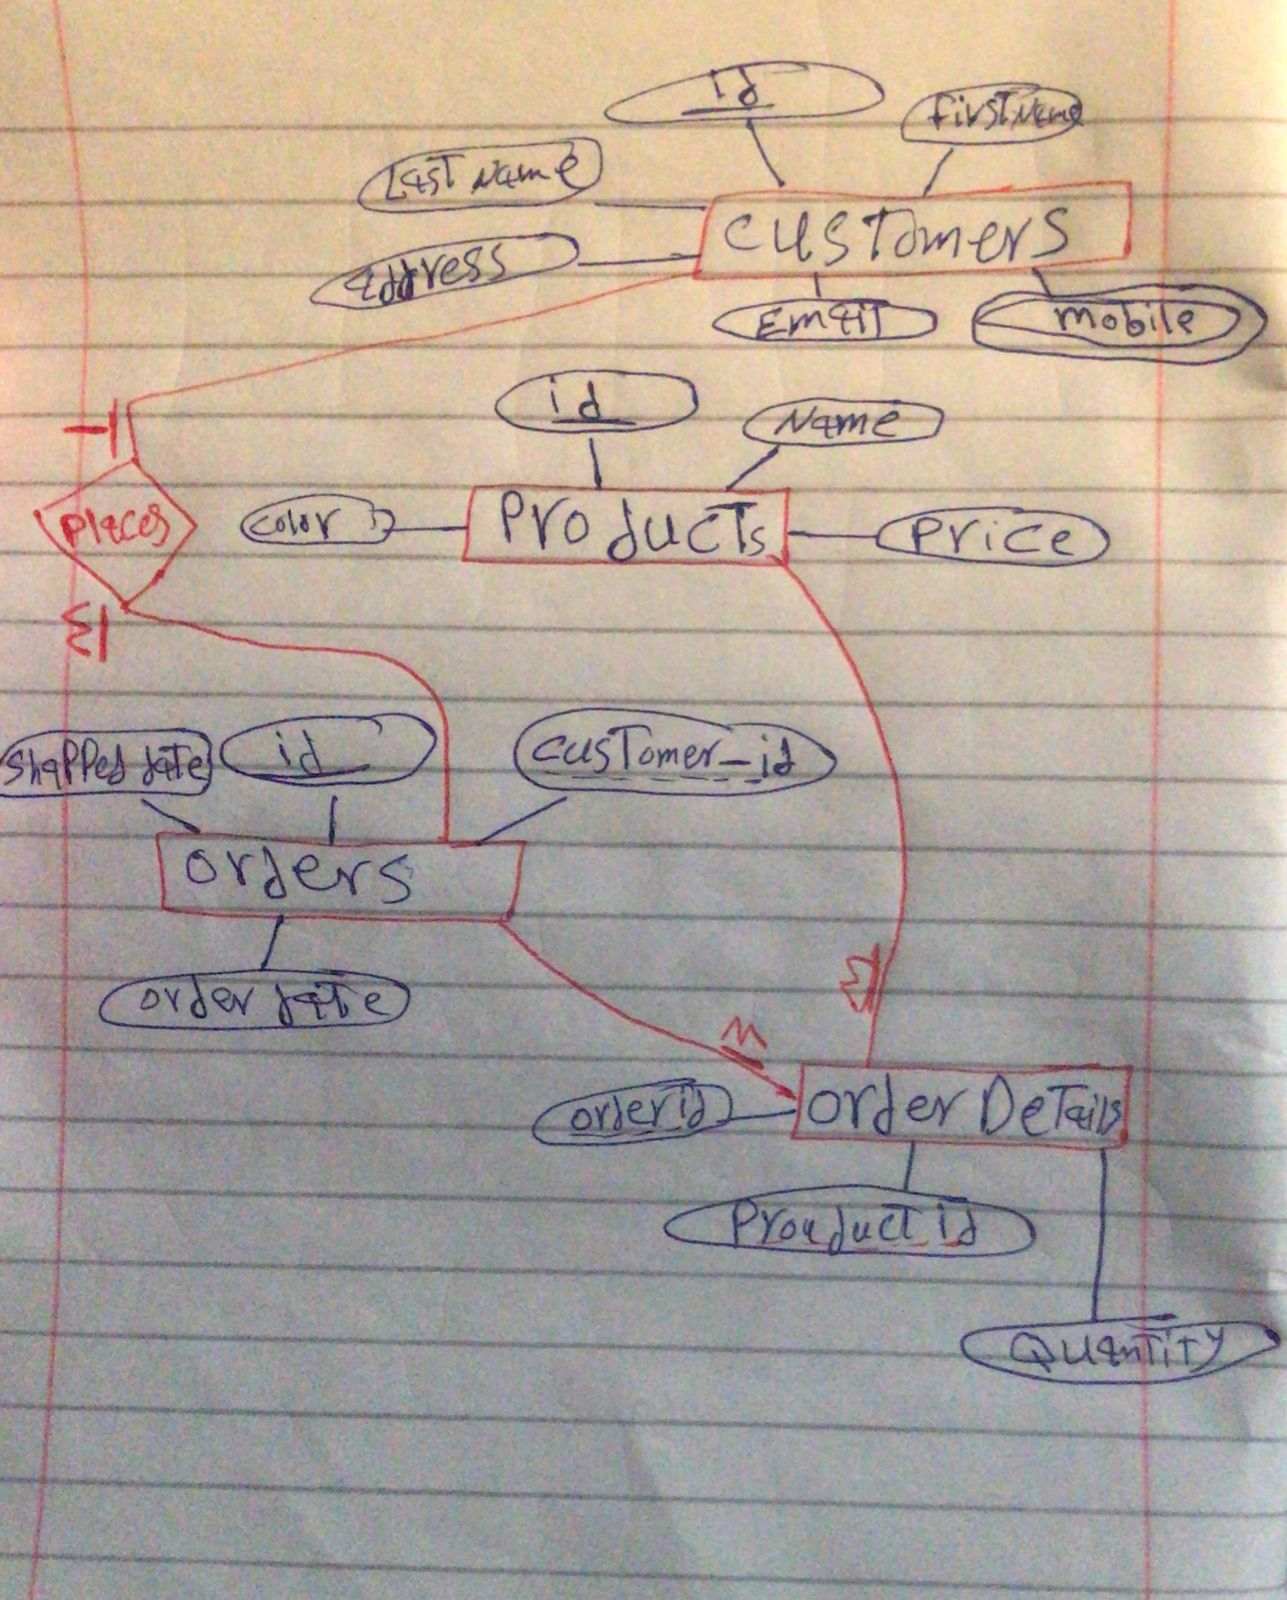 id
FirstName
Last Name
customers
address
Email
mobile
id
Name
Places
color
Products
Price
shapped date
id
customer_id
orders
order date
M
orderid
order Details
Prouduct id
Quantity